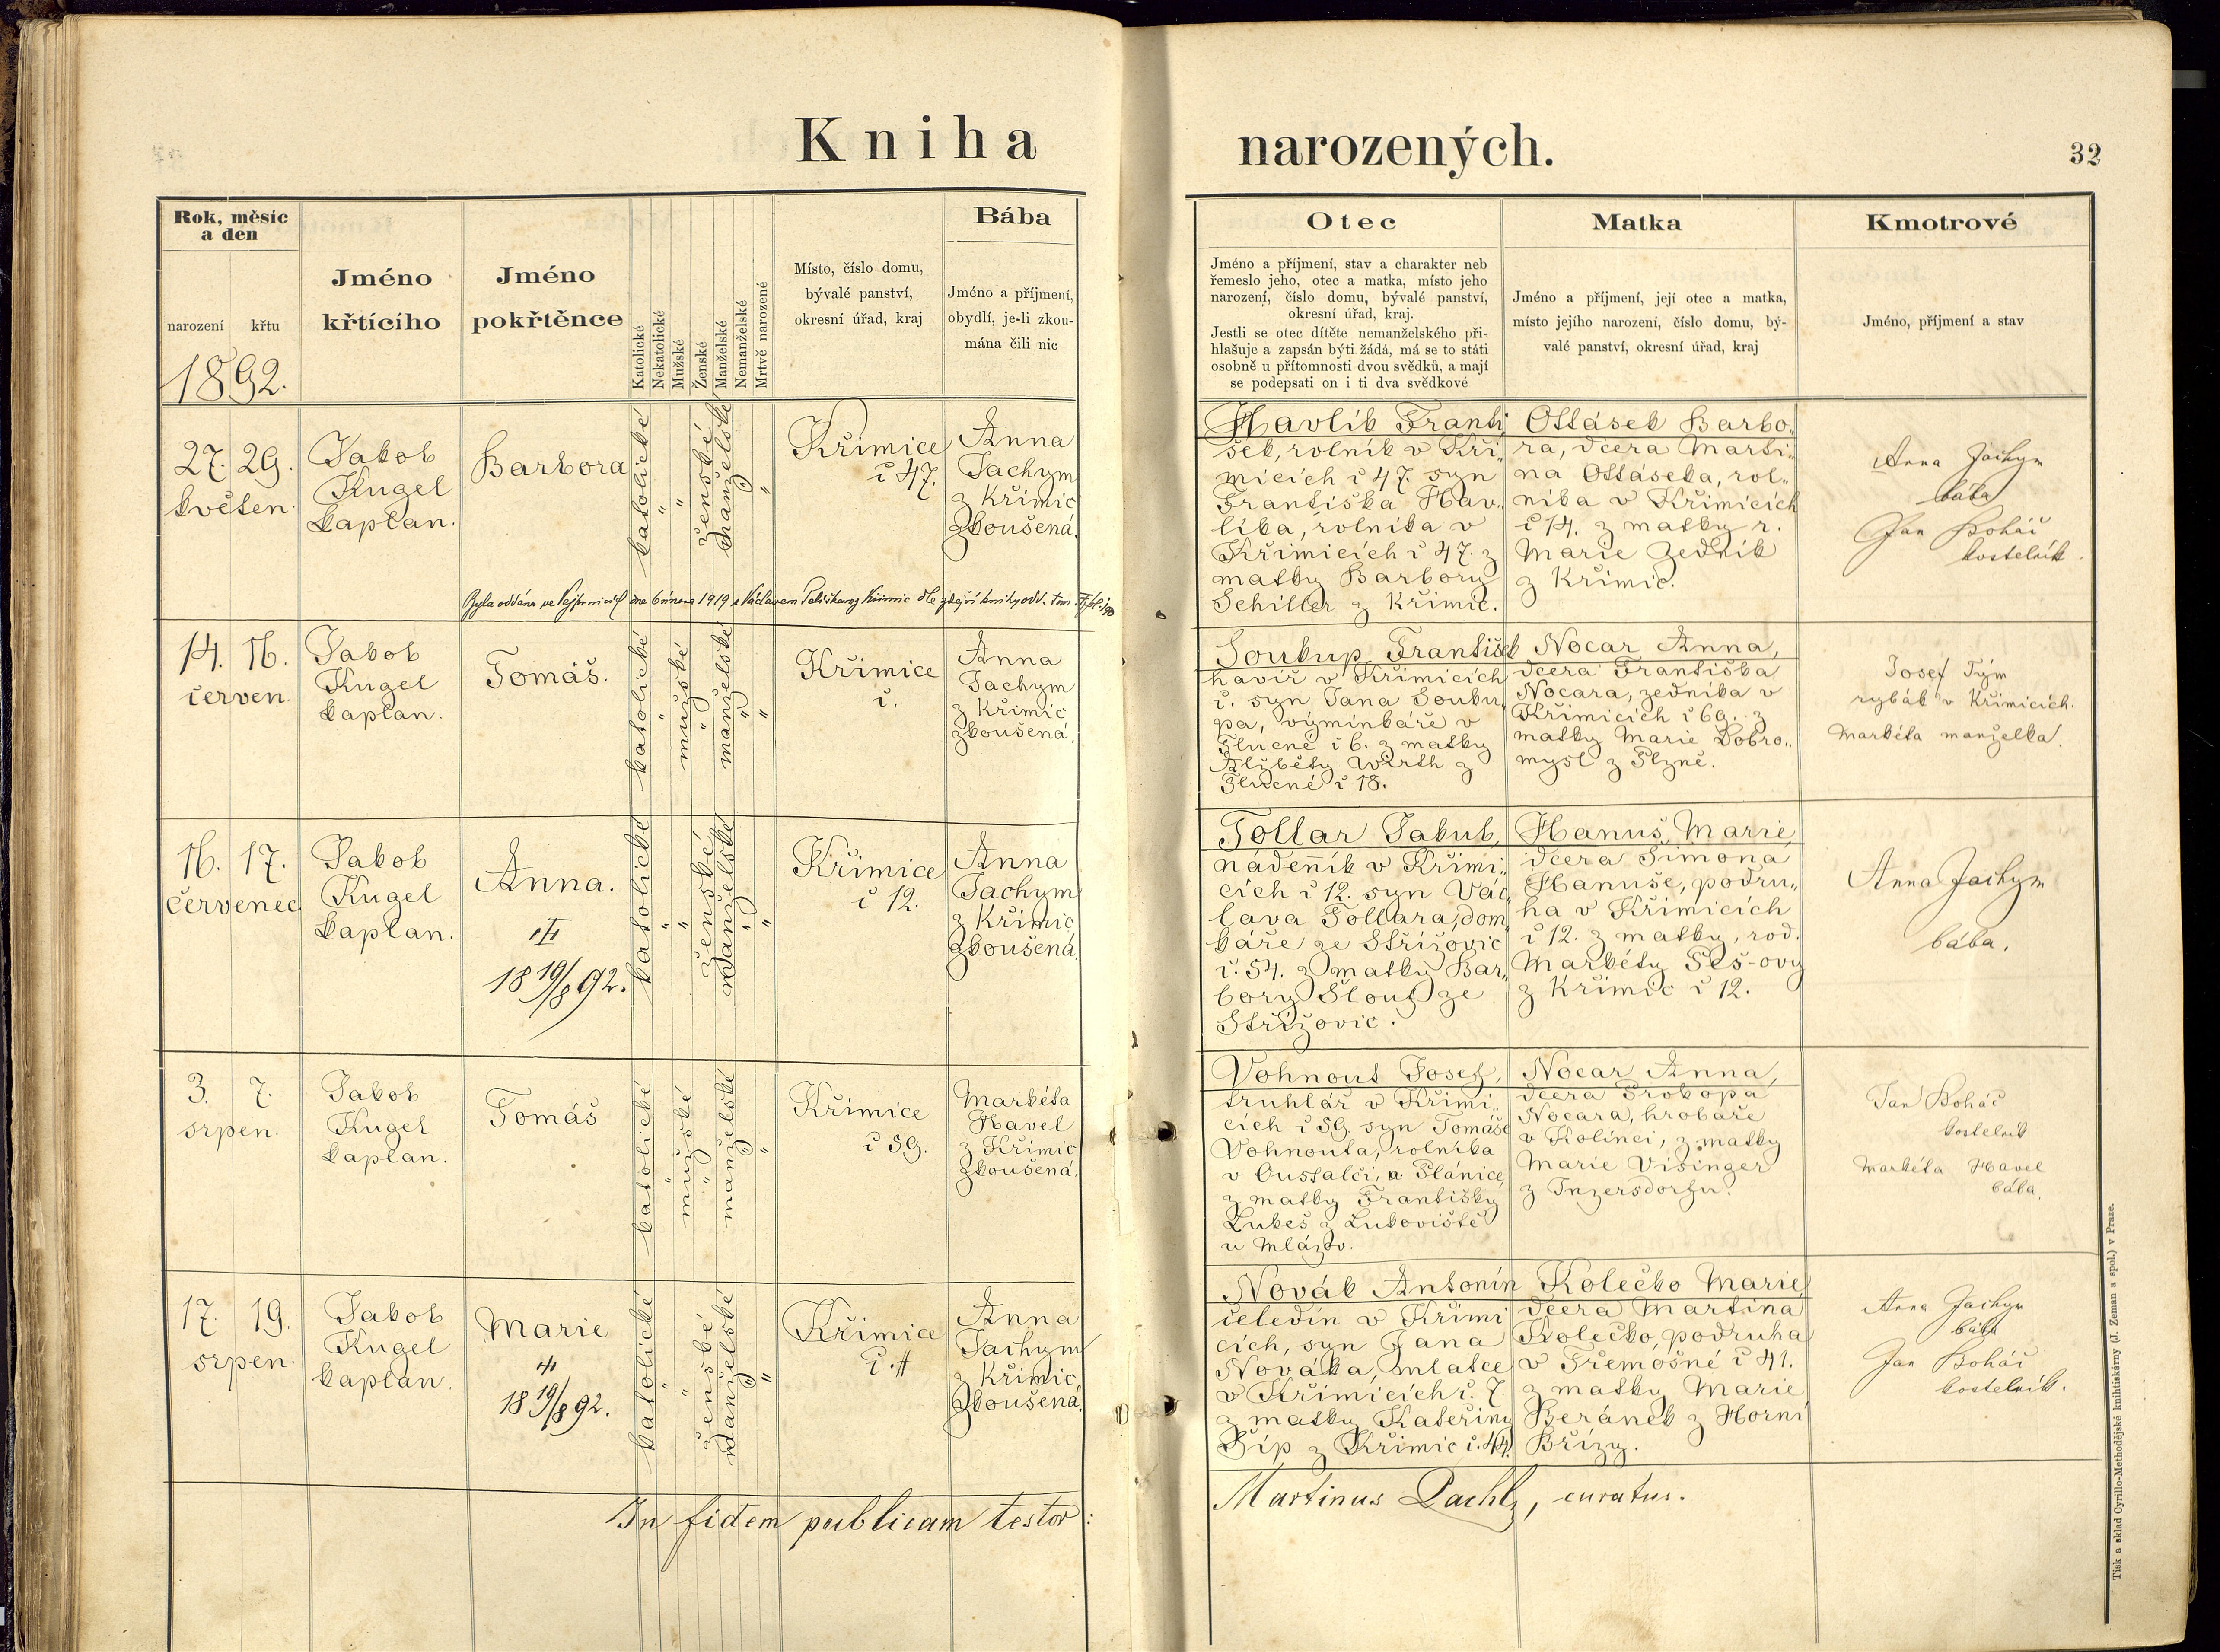 Kniha narozených.
32
Rok, měsíc a den
narození
křtu
1892.
Jméno křtícího
Jméno pokřtěnce
Katolické
Nekatolické
Mužské
Ženské
Manželské
Nemanželské
Mrtvě narozené
Místo, číslo domu,
bývalé panství,
okresní úřad, kraj
Bába
Jméno a příjmení,
obydlí, je-li zkou-
mána čili nic
Otec
Jméno a příjmení, stav a charakter neb
řemeslo jeho, otec a matka, místo jeho
narození, číslo domu, bývalé panství,
okresní úřad, kraj.
Jestli se otec dítěte nemanželského při-
hlašuje a zapsán býti žádá, má se to státi
osobně u přítomnosti dvou svědků, a mají
se podepsati on i ti dva svědkové
Matka
Jméno a příjmení, její otec a matka,
místo jejího narození, číslo domu, bý-
valé panství, okresní úřad, kraj
Kmotrové
Jméno, příjmení a stav
27. 29.
květen
Jakob
Kugel
kaplan.
Barbora
katolické
"
"
ženské
manželské
"
"
Křimice
č 47.
Anna
Jachym
z Křimic
zkoušená.
Havlík Franti
šek, rolník v Kři-
micích č 47. syn
Františka Hav-
líka, rolníka v
Křimicích č 47. z
matky Barbory
Schiller z Křimic.
Ottásek Barbo-
ra, dcera Marti-
na Ottáseka, rol-
níka v Křimicích
č 14. z matky r.
Marie Zedník
z Křimic.
Anna Jachym
bába
Jan Boháč
kostelník.
Byla oddána ve Vejprnicích dne 6 února 1919 s Václavem z Křimic dle zdejší knihy odd.
14. 16.
červen.
Jakob
Kugel
kaplan.
Tomáš.
katolické
"
mužské
"
manželské
"
"
Křimice
č.
Anna
Jachym
z Křimic
zkoušená.
Soukup František
havíř v Křimicích
č. syn Jana Souku-
pa, výminkáře v
Tlucné č 6. z matky
Alžběty Wirth z
Tlucné č 18.
Nocar Anna,
dcera Františka
Nocara, zedníka v
Křimicích č 69. z
matky Marie Dobro-
mysl z Plzně.
Josef Tým
rybák v Křimicích.
Markéta manželka.
16. 17.
červenec
Jakob
Kugel
kaplan.
Anna.
18 19/8 92.
katolické
"
"
ženské
manželské
"
"
Křimice
č 12.
Anna
Jachym
z Křimic
zkoušená.
Tollar Jakub,
nádeník v Křimi-
cích č 12. syn Vác-
lava Tollara, dom
káře ze Střížovic
č. 54. z matky Bar-
bory Slouf ze
Střížovic.
Hanuš Marie,
dcera Šimona
Hanuše, podru-
ha v Křimicích
č 12. z matky, rod.
Markéty Peš-ovy
z Křimic č 12.
Anna Jachym
bába.
3. 7.
srpen.
Jakob
Kugel
kaplan.
Tomáš
katolické
"
mužské
"
manželské
"
"
Křimice
č 59.
Markéta
Havel
z Křimic
zkoušená.
Vohnout Josef,
truhlář v Křimi-
cích č 59. syn Tomáše
Vohnouta, rolníka
v Oustalči, u Plánice,
z matky Františky
Lukeš z Lukoviště
u Mlázov.
Nocar Anna,
dcera Prokopa
Nocara, hrobaře
v Kolinci, z matky
Marie Visinger
z Inzersdorfu.
Jan Boháč
kostelník
Markéta Havel
bába.
17. 19.
srpen.
Jakob
Kugel
kaplan.
Marie
18 19/8 92.
katolické
"
"
ženské
manželské
"
"
Křimice
č.
Anna
Jachym
z Křimic,
zkoušená.
Novák Antonín
čeledín v Křimi
cích, syn Jana
Nováka, mlatce
v Křimicích č. 7
z matky Kateřiny
Šíp z Křimic č. 44.
Kolečko Marie,
dcera Martina
Kolečko, podruha
v Třemošné č 41.
z matky Marie
Beránek z Horní
Břízy.
Anna Jachym
bába
Jan Boháč
kostelník.
In fidem publicam testor:
Martinus Pachlz, curatus.
Tisk a sklad Cyrillo-Methodějské knihtiskárny (J. Zeman a spol.) v Praze.